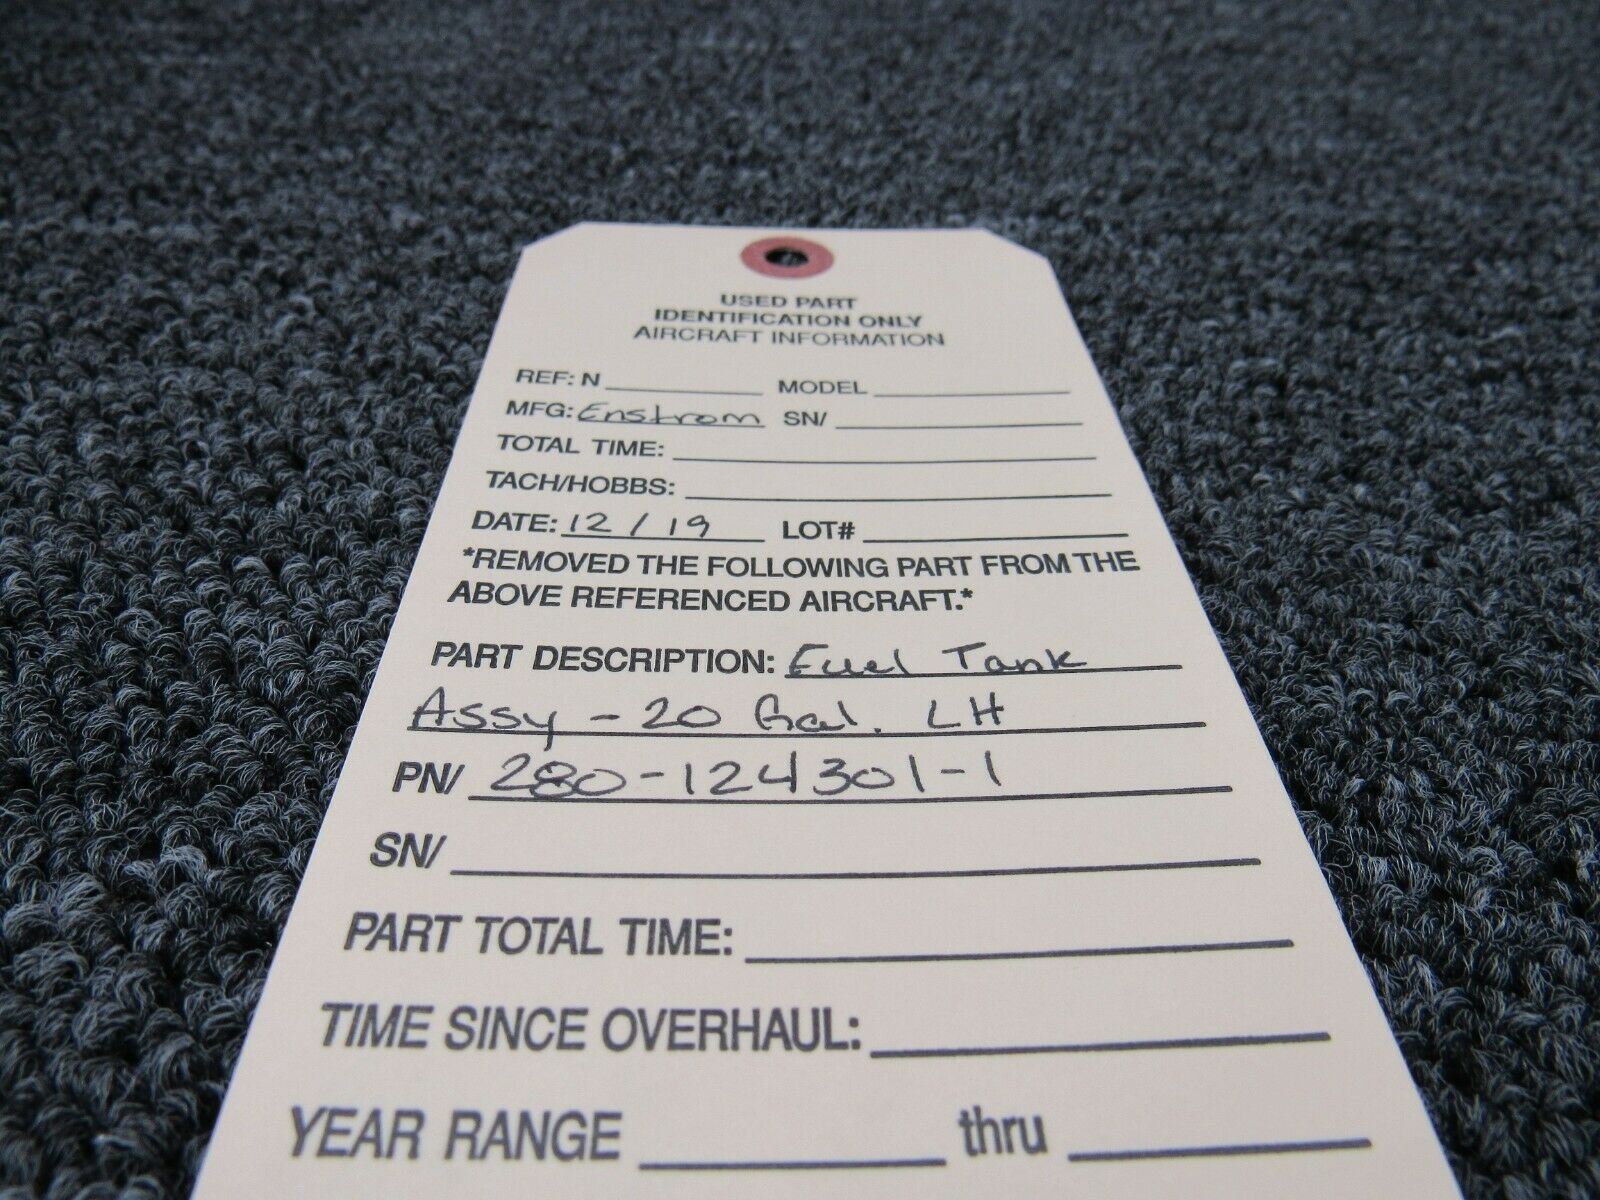 USED PART
IDENTIFICATION ONLY
AIRCRAFT INFORMATION
REF: N MODEL
MFG: Enstrom SN/
TOTAL TIME:
TACH/HOBBS:
DATE: 12/19 LOT#
*REMOVED THE FOLLOWING PART FROM THE
ABOVE REFERENCED AIRCRAFT.*
PART DESCRIPTION: Fuel Tank
Assy - 20 Gal. LH
PN/ 280-124301-1
SN/
PART TOTAL TIME:
TIME SINCE OVERHAUL:
YEAR RANGE thru